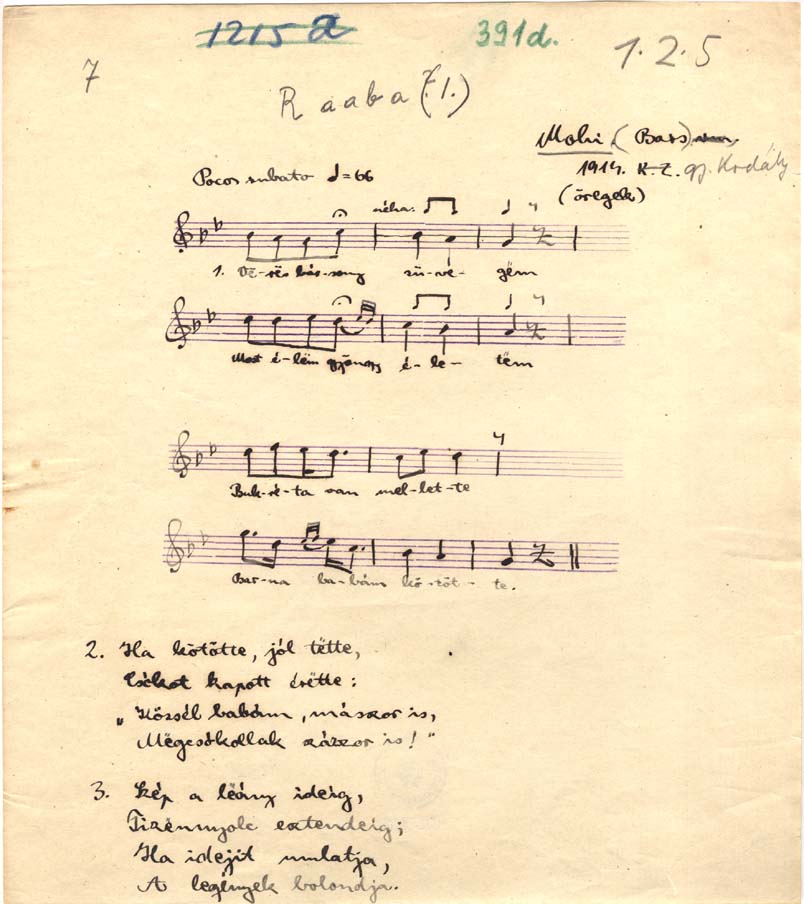 1215 a
391d.
1.2.5
7
Raaba (7.1.)
Mohi (Bars)
1914. K.Z. gy. Kodály
(öregek)
Pocos rubato ♩=66
néha:
1. Vē-rës bár-sony sü-vē-gëm
Most é-lëm gyöngy é-le-tëm
Buk-ré-ta van mel-let-te
Bar-na ba-bám kö-töt-te.
2. Ha kötötte, jól tëtte,
Csókot kapott érëtte:
„Közsél babám, mászor is,
Mëgcsókollak százszor is!"
3. Kép a lëány ideig,
Tizënnyolc esztendeig;
Ha idejit mulatja,
A legények bolondja.